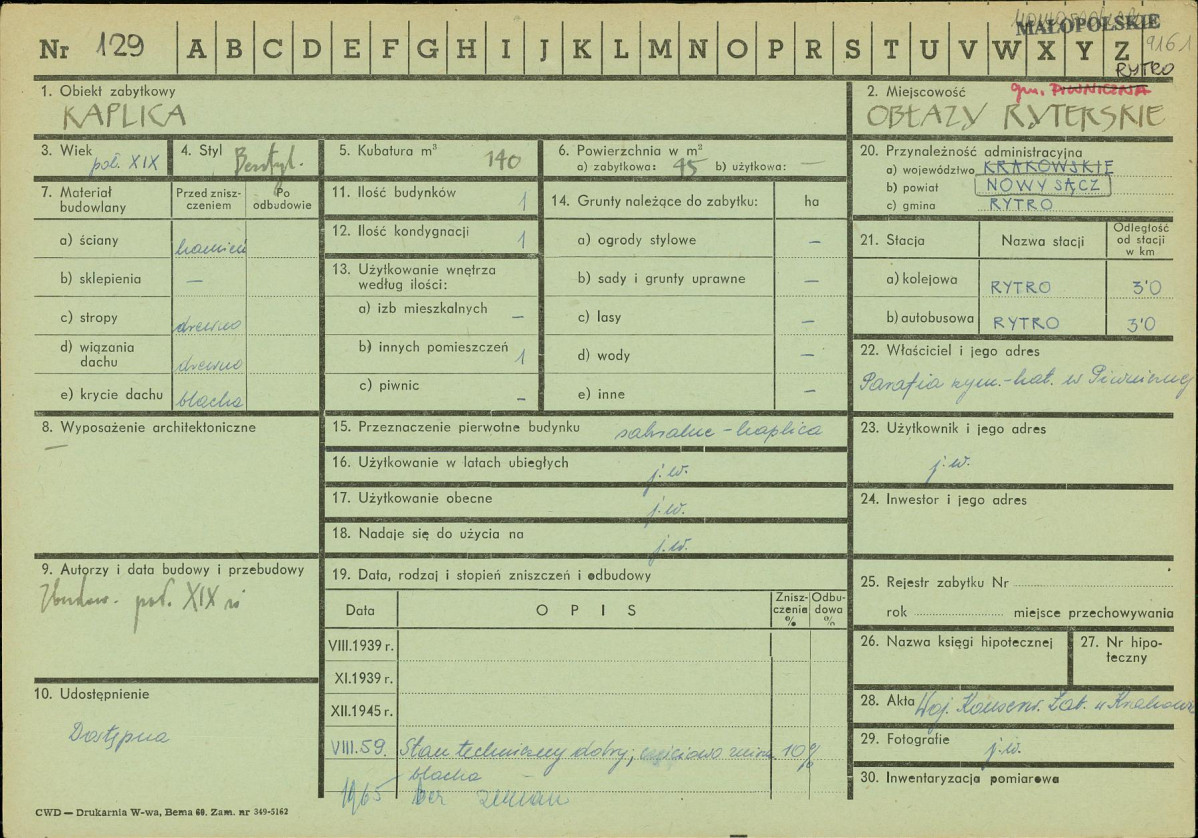 MAŁOPOLSKIE
Nr 129 A B C D E F G H I J K L M N O P R S T U V W X Y Z
9161
RYTRO
1. Obiekt zabytkowy
KAPLICA
2. Miejscowość gm. PIWNICZNA
OBŁAZY RYTERSKIE
3. Wiek
poł. XIX
4. Styl
Bezstyl.
5. Kubatura m³
140
6. Powierzchnia w m²
a) zabytkowa: 45 b) użytkowa: —
7. Materiał budowlany
Przed zniszczeniem
Po odbudowie
a) ściany kamień
b) sklepienia —
c) stropy drewno
d) wiązania dachu drewno
e) krycie dachu blacha
8. Wyposażenie architektoniczne
—
9. Autorzy i data budowy i przebudowy
Zbudow. poł. XIX w
10. Udostępnienie
Dostępna
11. Ilość budynków 1
12. Ilość kondygnacji 1
13. Użytkowanie wnętrza
według ilości:
a) izb mieszkalnych —
b) innych pomieszczeń 1
c) piwnic —
14. Grunty należące do zabytku: ha
a) ogrody stylowe —
b) sady i grunty uprawne —
c) lasy —
d) wody —
e) inne —
15. Przeznaczenie pierwotne budynku sakralne - kaplica
16. Użytkowanie w latach ubiegłych j.w.
17. Użytkowanie obecne j.w.
18. Nadaje się do użycia na j.w.
19. Data, rodzaj i stopień zniszczeń i odbudowy
Data OPIS Zniszczenie % Odbudowa %
VIII.1939 r.
XI.1939 r.
XII.1945 r.
VIII.59. Stan techniczny dobry; częściowo 10%
blacha
1965 bez zmian
20. Przynależność administracyjna
a) województwo KRAKOWSKIE
b) powiat NOWY SĄCZ
c) gmina RYTRO
21. Stacja
Nazwa stacji
Odległość
od stacji
w km
a) kolejowa RYTRO 3'0
b) autobusowa RYTRO 3'0
22. Właściciel i jego adres
Parafia rzym.-kat. w Piwnicznej
23. Użytkownik i jego adres
j.w.
24. Inwestor i jego adres
25. Rejestr zabytku Nr
rok miejsce przechowywania
26. Nazwa księgi hipotecznej
27. Nr hipoteczny
28. Akta Woj. Konserw. Zab. w Krakowie
29. Fotografie j.w.
30. Inwentaryzacja pomiarowa
CWD — Drukarnia W-wa, Bema 60. Zam. nr 349-5162